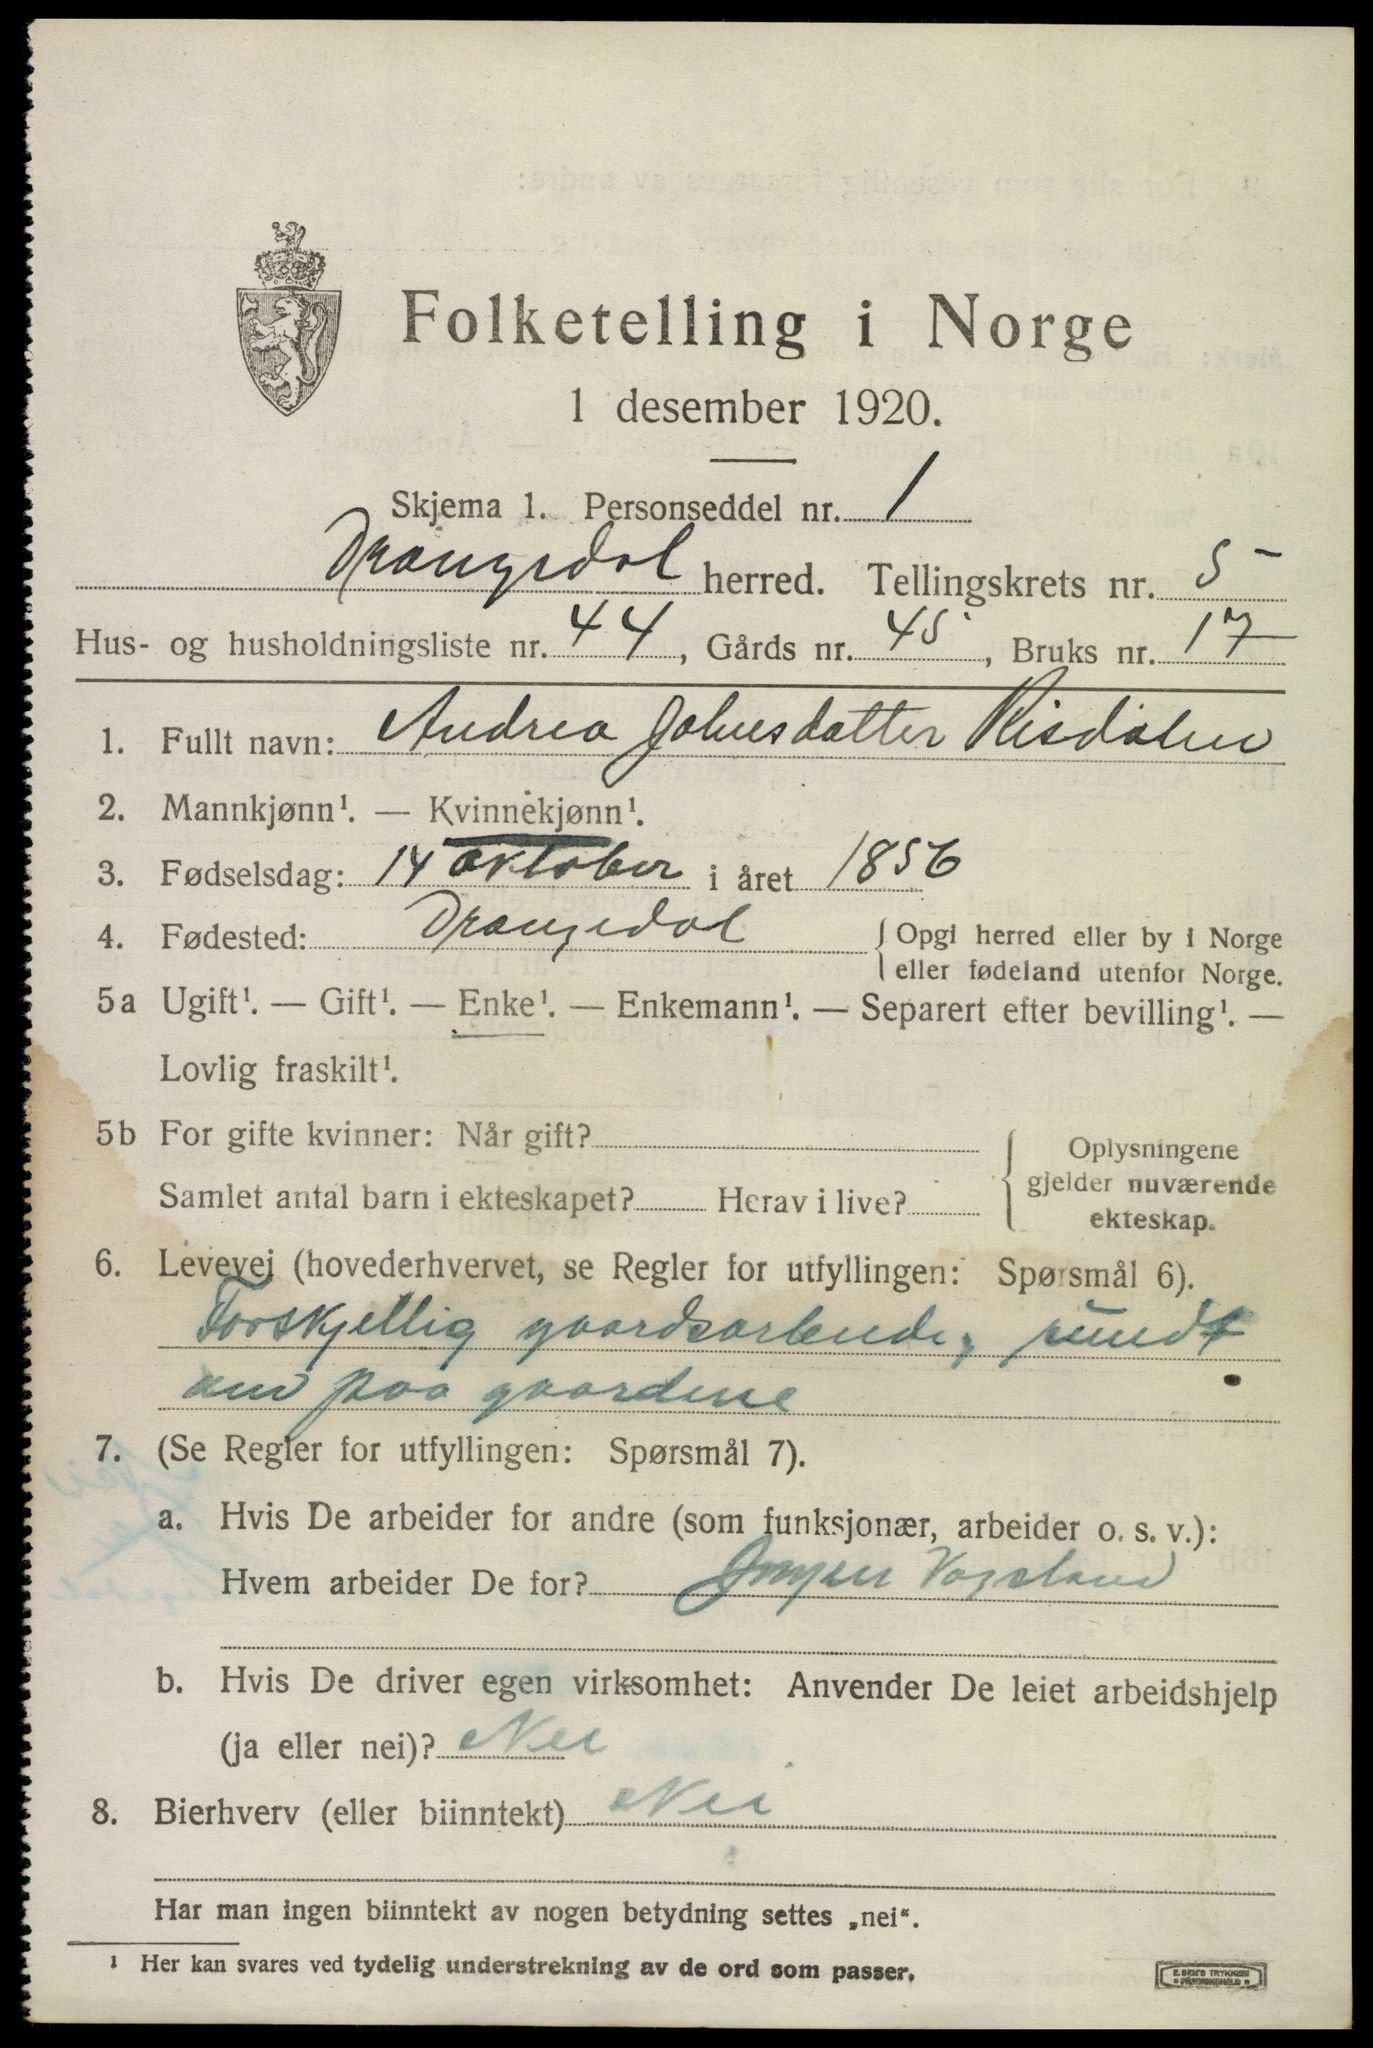 Folketelling i Norge
1 desember 1920.
Skjema 1. Personseddel nr. 1
Drangedal herred. Tellingskrets nr. 5
Hus- og husholdningsliste nr. 44, Gårds nr. 45, Bruks nr. 17
1. Fullt navn: Andrea Johnsdatter Risdalen
2. Mannkjønn¹. — Kvinnekjønn¹.
3. Fødselsdag: 14 oktober i året 1856
4. Fødested: Drangedal { Opgi herred eller by i Norge
eller fødeland utenfor Norge.
5a Ugift¹. — Gift¹. — Enke¹. — Enkemann¹. — Separert efter bevilling¹. —
Lovlig fraskilt¹.
5b For gifte kvinner: Når gift?
Samlet antal barn i ekteskapet? Herav i live?
Oplysningene
gjelder nuværende
ekteskap.
6. Levevei (hovederhvervet, se Regler for utfyllingen: Spørsmål 6).
Forskjellig gaardsarbeide, rundt
om paa gaardene
7. (Se Regler for utfyllingen: Spørsmål 7).
a. Hvis De arbeider for andre (som funksjonær, arbeider o. s. v.):
Hvem arbeider De for? Jørgen Vogsland
b. Hvis De driver egen virksomhet: Anvender De leiet arbeidshjelp
(ja eller nei)? Nei
8. Bierhverv (eller biinntekt) Nei
Har man ingen biinntekt av nogen betydning settes „nei“.
¹ Her kan svares ved tydelig understrekning av de ord som passer.